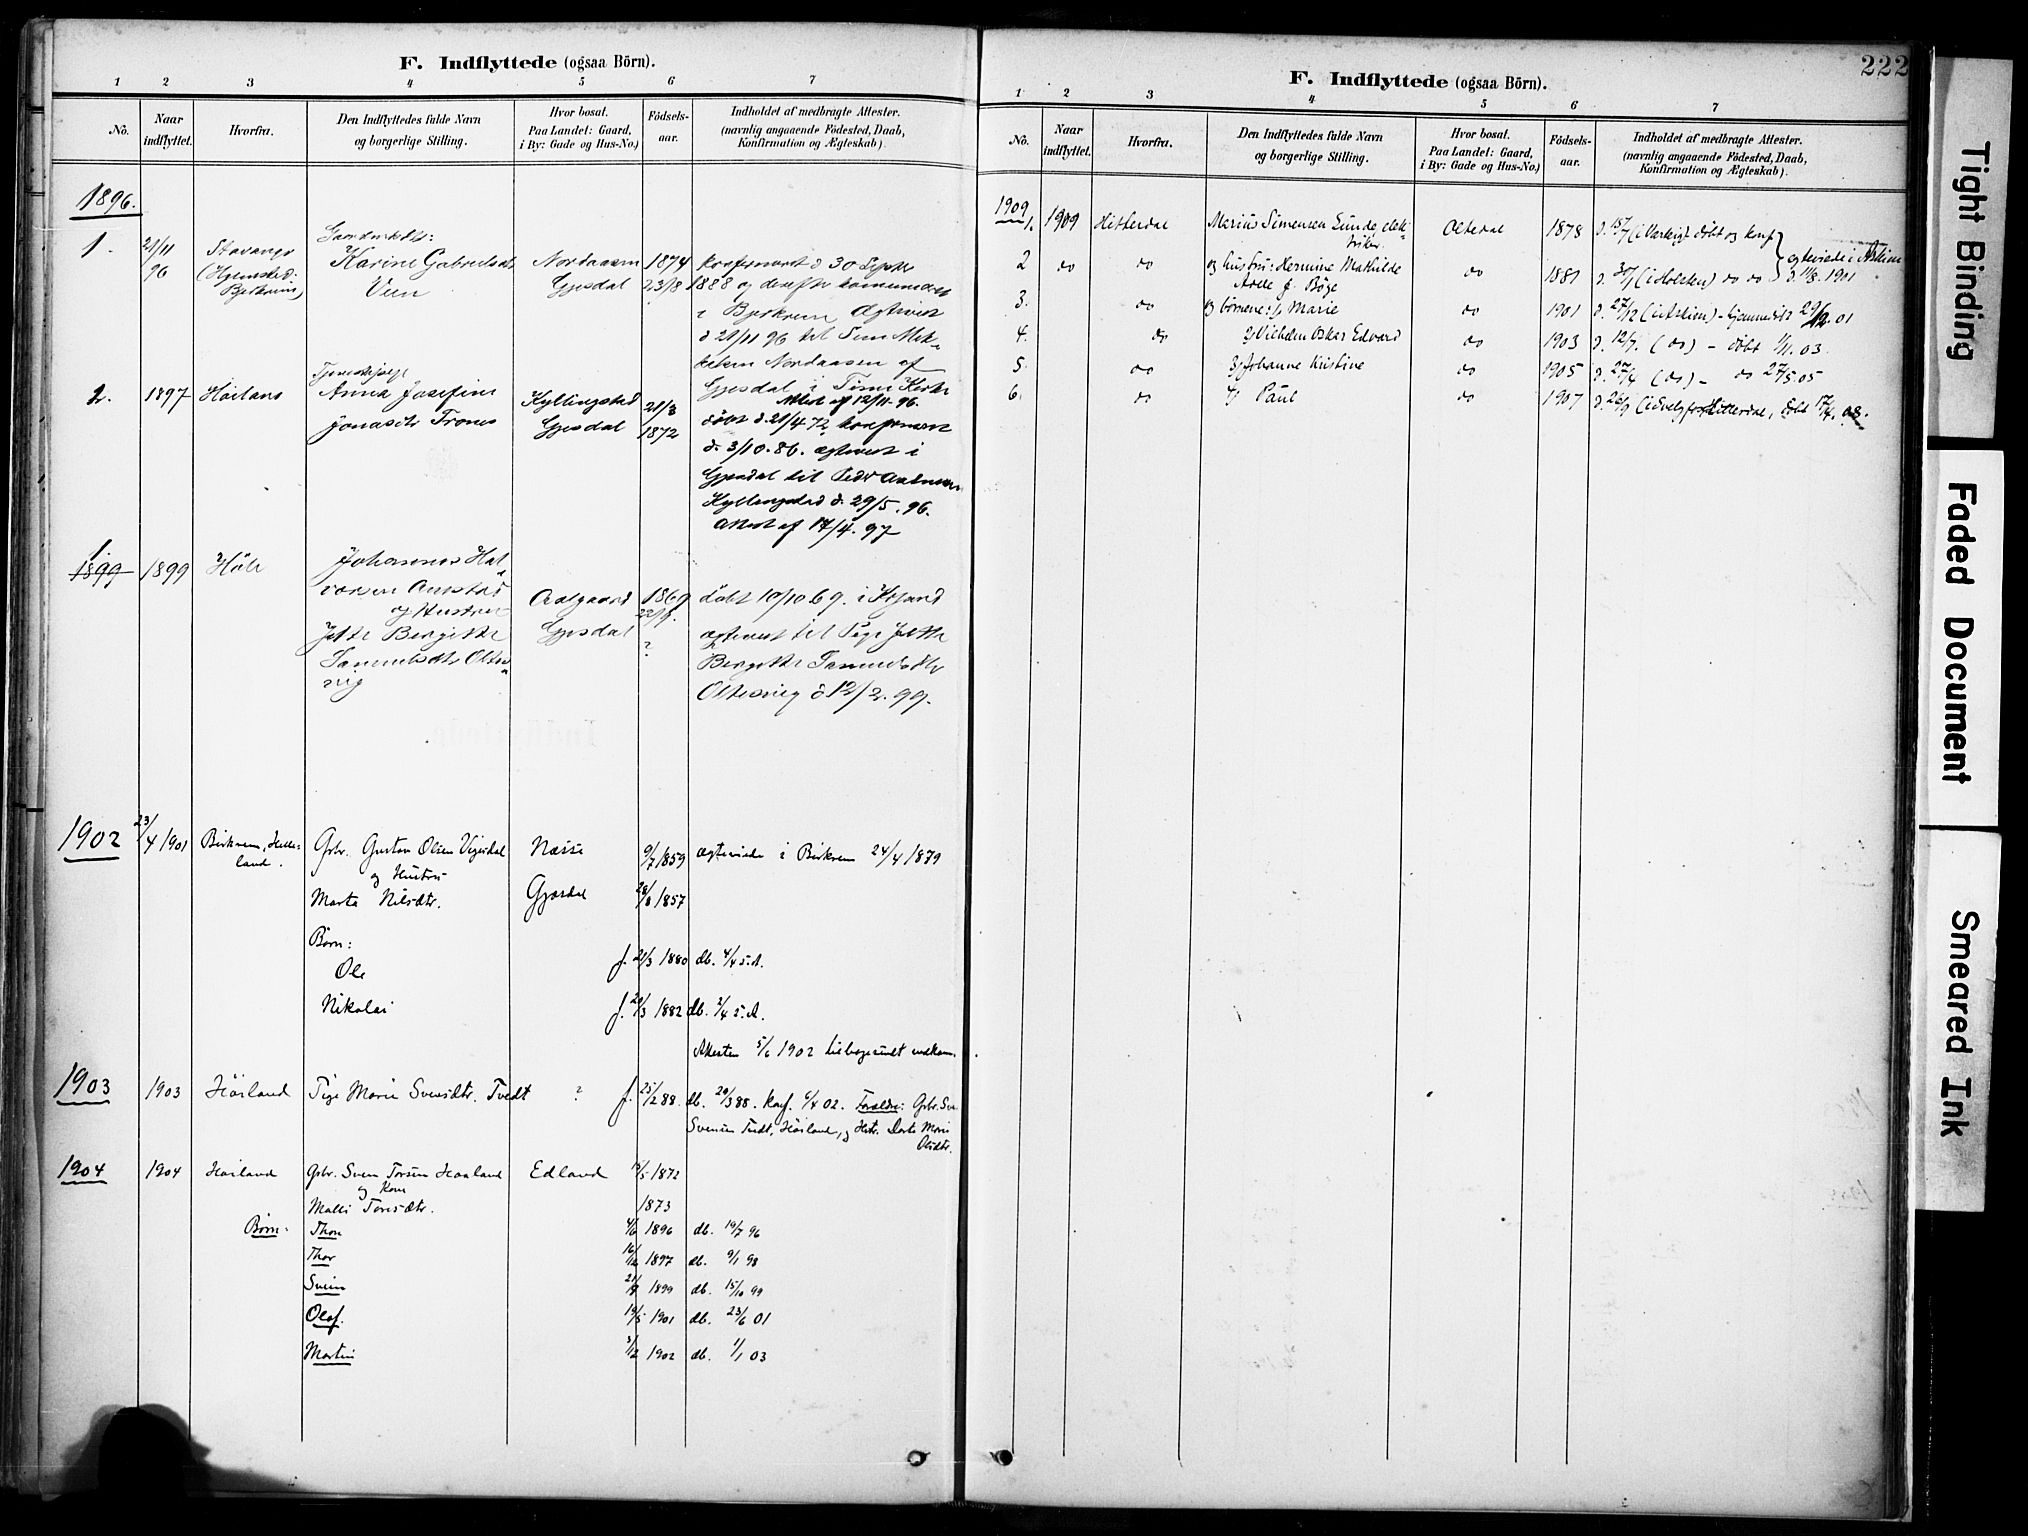 F. Indflyttede (ogsaa Börn).
1 2 3 4 5 6 7
No.
Naar indflyttet.
Hvorfra.
Den Indflyttedes fulde Navn
og borgerlige Stilling.
Hvor bosat.
Paa Landet: Gaard,
i By: Gade og Hus-No.)
Födsels-
aar.
Indholdet af medbragte Attester.
(navnlig angaaende Födested, Daab,
Konfirmation og Ægteskab).
1896.
1. 21/11 96 Stavanger
Karine Gabrielsdt Nordaasen 1874 konfirmeret d 30 Septbr
Veen Gjesdal 23/8 1888 og derefter
i Bjerkrem Ægteviet
d 21/11 96 til
Nordaasen af
Gjesdal i Time Kirke
Attest af 12/11. 96.
2. 1897 Höiland
Tjenestepige
Anna Josefine Kyllingstad 21/3 døbt d. 21/4 72 konfirmeret
Jonasdtr Trones Gjesdal 1872 d. 3/10. 86. ægteviet i
Gjesdal til Peder
Kyllingstad d. 29/5. 96.
Attest af 17/4. 97
1
1899 1899 Höle
Johannes Hal-
vorsen Aalgaard 1869 døbt 10/10 69. i
og Hustru
Jette Bergitte Gjesdal ? ægteviet til Pige Jette
Bergitte
Oltesvig d 12/2. 99.
1902 23/4 1901 Birkrem, Helle-
land.
Gbr. Gustav Olsen Vigesdal Næsse 9/7 1859 ægteviede i Birkrem 24/4 1879
og Hustru
Marta Nilsdtr. Gjesdal 28/8 1857
Børn:
Ole f. 21/3 1880 db. 4/4 s.A.
Nikolai f. 20/3 1882 db. 2/4 s.A.
Attesten 5/6 1902 tilbagesendt
1903 1903 Höiland Pige Marie Svensdtr. Tvedt ? f. 25/2 88. db. 20/3 88. Konf. 6/4 02. Forældre: Gbr.
Svensen Tvedt, Höiland, og Hstr. Dorte Marie
Olsdtr.
1904 1904 Höiland Gbr. Sven Torsen Haaland Edland 19/5 1872
og Kone
Malli Toresdtr. 1873
Børn: Thore 4/6 1896 db. 19/7 96
Thor 16/12 1897 db. 9/1 98
Svein 1899 db. 15/10 99
Olaf. 19/5 1901 db. 23/6 01
Martin 3/12 1902 db. 1/1 03
222
F. Indflyttede (ogsaa Börn).
1 2 3 4 5 6 7
No.
Naar indflyttet.
Hvorfra.
Den Indflyttedes fulde Navn
og borgerlige Stilling.
Hvor bosat.
Paa Landet: Gaard,
i By: Gade og Hus-No.)
Födsels-
aar.
Indholdet af medbragte Attester.
(navnlig angaaende Födested, Daab,
Konfirmation og Ægteskab).
1909
1. 1909 Hitterdal Marius Simensen Lunde, elek-
triker. Oltedal 1878 døbt og konf
2 do do og hustru: Hermine Mathilde do 1881 do do ægteviede i Askim
f. Böge d. 11/8. 1901
3. do og børnene: 1/ Marie do 1901 d. 27/12 (i Askim) - hjemmedøbt 29/12. 01
4. do 2/ Vilhelm Oskar Edvard do 1903 d. 12/9. (do) - døbt 1/11. 03.
5. do 3/ Johanne Kristine do 1905 d. 27/4 (do) - do 27/5. 05
6. do 4/ Paul do 1907 Hitterdal, døbt 17/4. 08.
Tight Binding
Faded Document
Smeared Ink